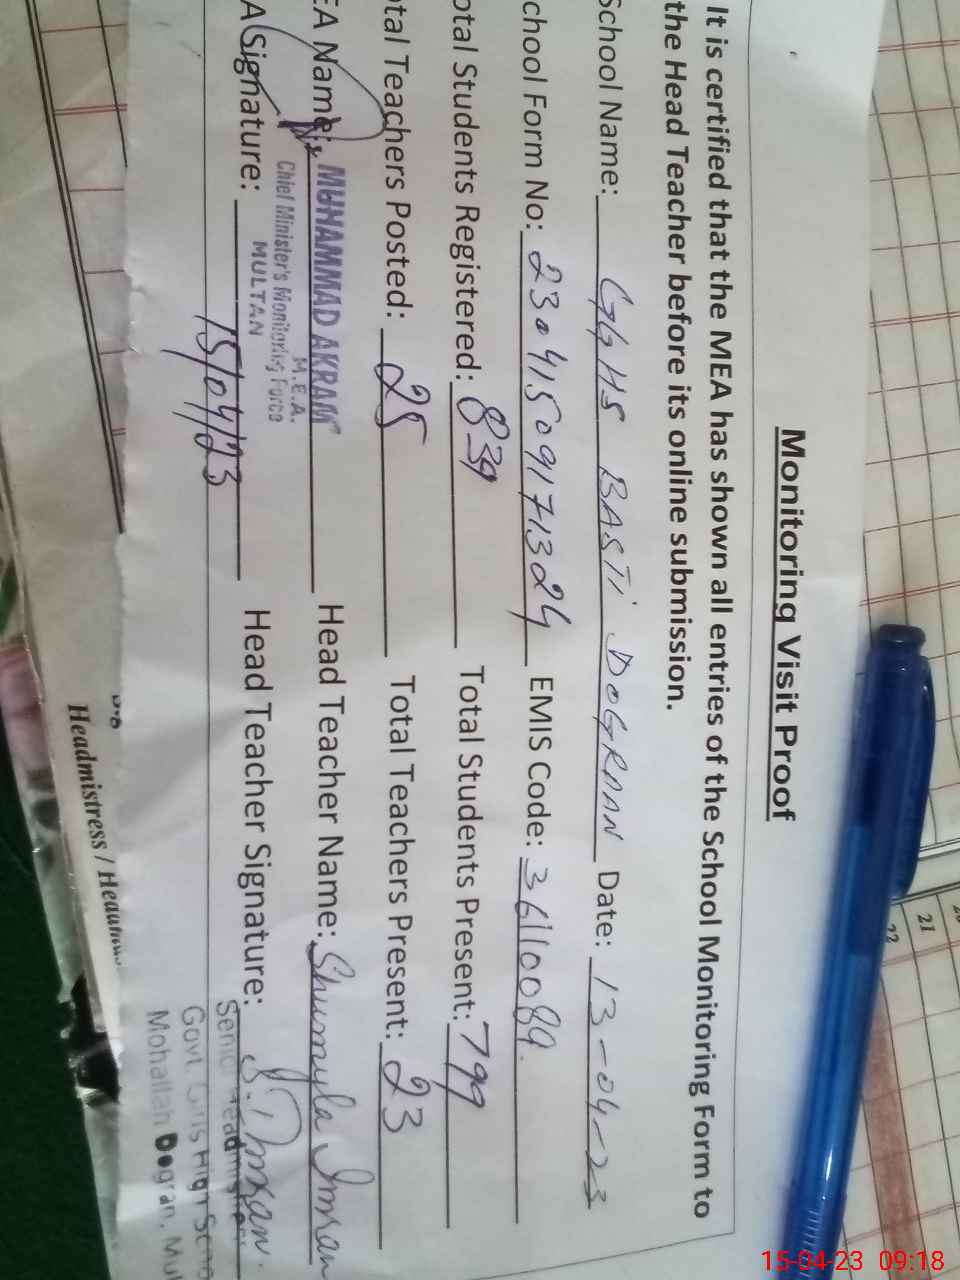 Monitoring Visit Proof
It is certified that the MEA has shown all entries of the School Monitoring Form to
the Head Teacher before its online submission.
School Name: GGHS BASTI DOGRAAN Date: 13-04-23
chool Form No: 23041509171324 EMIS Code: 36110089.
otal Students Registered: 839 Total Students Present: 799
otal Teachers Posted: 25 Total Teachers Present: 23
EA Name: MUHAMMAD AKRAM Head Teacher Name: Shumyla Imran
M.E.A.
Chief Minister's Monitoring Force
MULTAN
A Signature: 15/04/23 Head Teacher Signature: S. Imran.
Senior Headmistress
Govt. Girls High
Mohallah Dogran, Mul
Headmistress / Headm
21
22
15-04-23 09:18